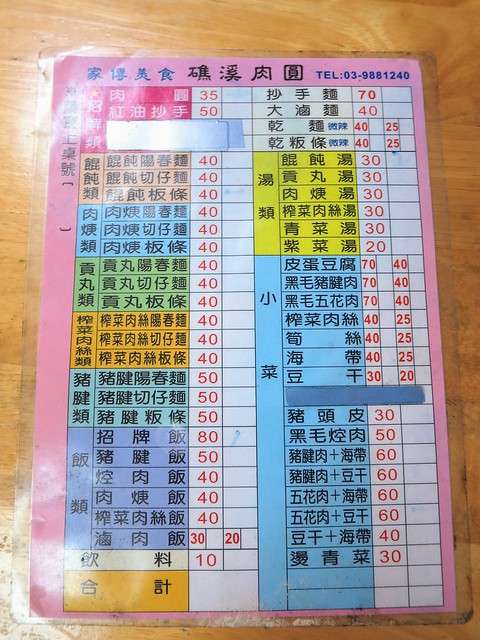 家傳美食 礁溪肉圓 TEL:03-9881240
肉圓 35
紅油抄手 50
餛飩類
餛飩陽春麵 40
餛飩切仔麵 40
餛飩板條 40
肉焿類
肉焿陽春麵 40
肉焿切仔麵 40
肉焿板條 40
貢丸類
貢丸陽春麵 40
貢丸切仔麵 40
貢丸板條 40
榨菜肉絲類
榨菜肉絲陽春麵 40
榨菜肉絲切仔麵 40
榨菜肉絲板條 40
豬腱類
豬腱陽春麵 50
豬腱切仔麵 50
豬腱粄條 50
飯類
招牌飯 80
豬腱飯 50
焢肉飯 40
肉焿飯 40
榨菜肉絲飯 40
滷肉飯 30 20
飲料 10
合計
抄手麵 70
大滷麵 40
乾麵 微辣 40 25
乾粄條 微辣 40 25
湯類
餛飩湯 30
貢丸湯 30
肉焿湯 30
榨菜肉絲湯 30
青菜湯 30
紫菜湯 20
小菜
皮蛋豆腐 70 40
黑毛豬腱肉 70 40
黑毛五花肉 70 40
榨菜肉絲 40 25
筍絲 40 25
海帶 40 25
豆干 30 20
豬頭皮 30
黑毛焢肉 50
豬腱肉＋海帶 60
豬腱肉＋豆干 60
五花肉＋海帶 60
五花肉＋豆干 60
豆干＋海帶 40
燙青菜 30